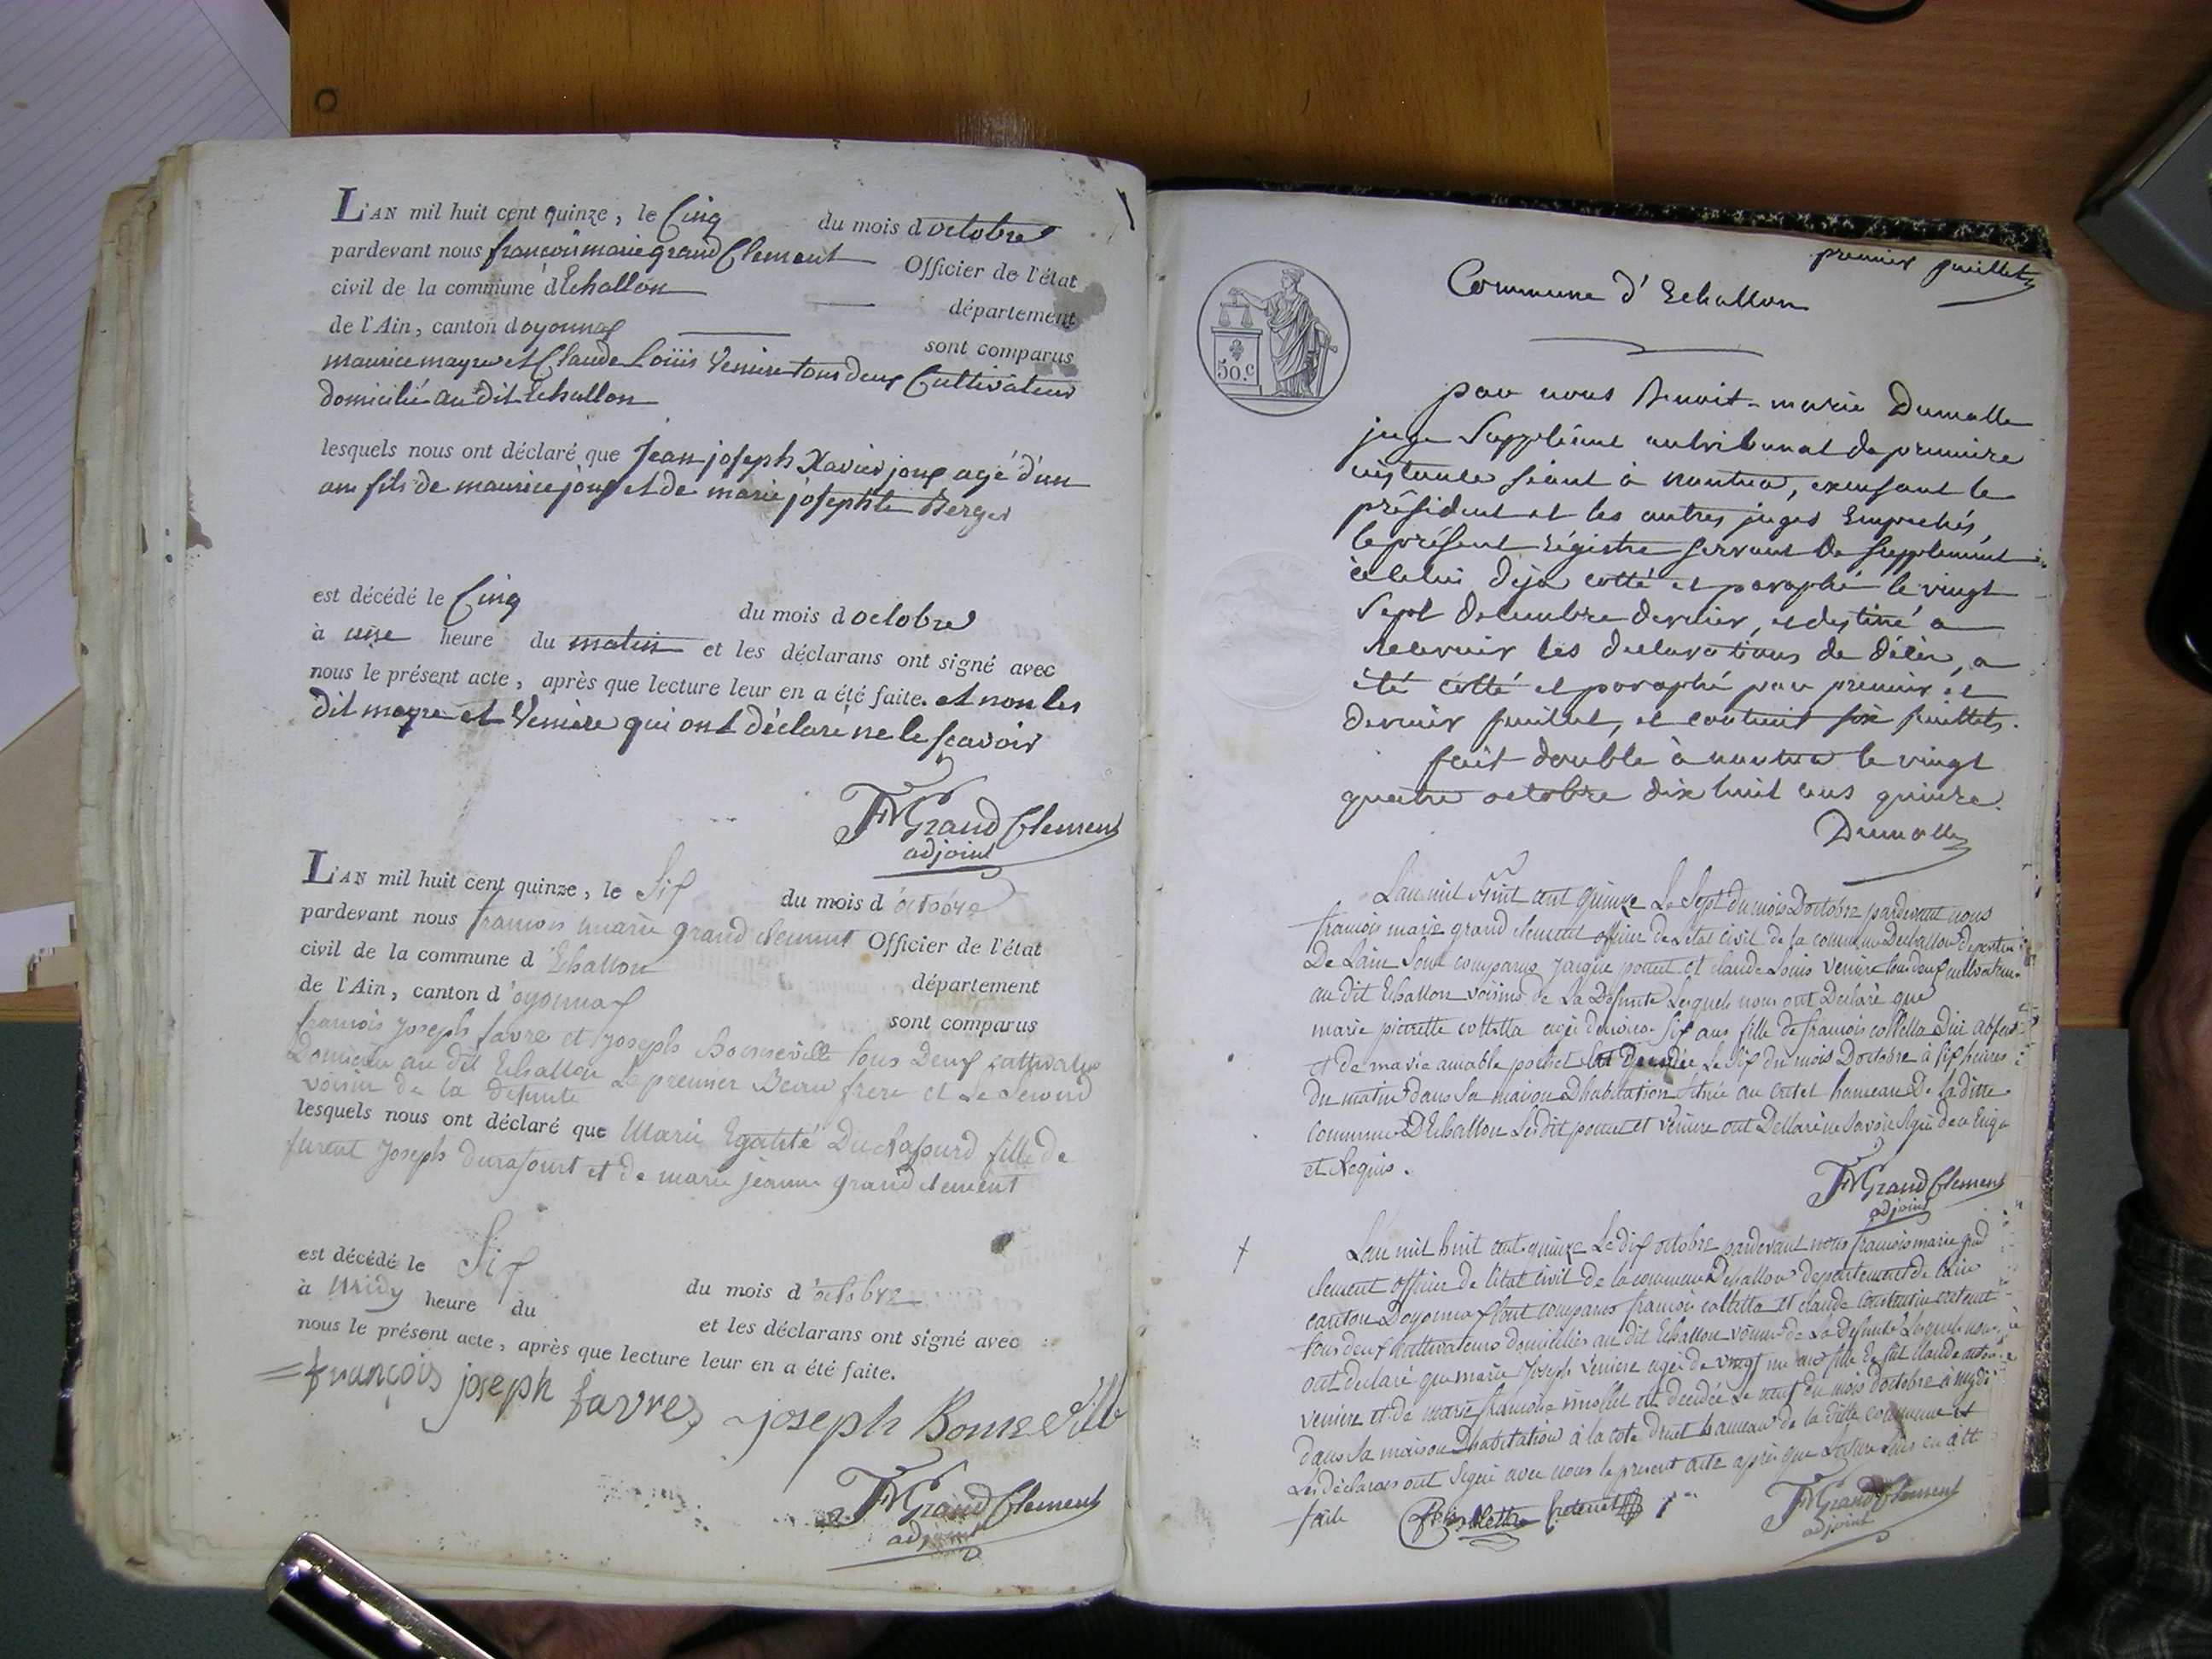 L'AN mil huit cent quinze, le Cinq du mois d octobre
pardevant nous françois marie grand Clement Officier de l'état
civil de la commune d Echallon département
de l'Ain, canton d oyonnax sont comparus
maurice mayre et Claude Loüis Veniere tous deux Cultivateur
domicilié au dit Echallon
lesquels nous ont déclaré que Jean joseph Xavier joux agé d'un
an fils de maurice joux et de marie josephte Berger
est décédé le Cinq du mois d octobre
à une heure du matin et les déclarans ont signé avec
nous le présent acte, après que lecture leur en a été faite. et non les
dit mayre et Veniere qui ont déclaré ne le scavoir
FM Grand Clement
adjoint
L'AN mil huit cent quinze, le Six du mois d'octobre
pardevant nous francois marie grand clement Officier de l'état
civil de la commune d Echallon département
de l'Ain, canton d'oyonnax sont comparus
francois Joseph favre et Joseph Bonneville tous Deux cultivateur
Domicilie au dit Echallon Le premier Beau frere et Le Second
voisin de la Defunte
lesquels nous ont déclaré que Marie Egalité Durafourd fille de
furent Joseph durafourt et de marie jeanne grand clement
est décédé le Six du mois d'octobre
à midy heure du et les déclarans ont signé avec
nous le présent acte, après que lecture leur en a été faite.
françois joseph favre joseph Bonneville
FM Grand Clement
adjoint
premier feuillet
Commune d'Echallon
50.c
par nous Benoit-marie Dumolle
juge Suppléant au tribunal de premiere
instance séant à nantua, excusant le
président et les autres juges Empechés,
le présent régistre servant de Supplement
à celui déja cotté et paraphé le vingt
Sept decembre dernier, et destiné a
recevoir les declarations de décès, a
été cotté et paraphé par premier et
dernier feuillet, et contient six feuillets.
fait double à nantua le vingt
quatre octobre dix huit cens quinze.
Dumolle
L'an mil huit cent quinze Le Sept du mois Doctobre pardevant nous
francois marie grand clement officier de l'etat civil de la commune Dechallon departem
De Lain Sont comparus jacque poncet et claude Louis Veniere tous deux cultivateur
au dit Echallon voisins de La Defunte Lesquels nous ont Declaré que
marie pierrette colletta agée de six ans fille de francois colletta
et de marie aimable poncet est Decedée Le Six du mois Doctobre à six heures
Du matin dans Sa maison Dhabitation Située au cretet hameau De la ditte
commune DEchallon Lesdit poncet et Veniere ont Declaré ne Savoir Signé de ce Enqu
et Requis.
FM Grand Clement
adjoint
L'an mil huit cent quinze Le dix octobre pardevant nous francois marie grand
clement officier de l'etat civil de la commune Dechallon departement de Lain
canton Doyonnax Sont comparus francois colletta et claude cretenet
tous deux cultivateurs domiciliés au dit Echallon voisins de La Defunte Lesquels nous
ont declaré que marie Joseph Veniere agée de vingt ans fille de feu claude
Veniere et de marie francoise est decedée Le neuf du mois doctobre à mydi
dans Sa maison Dhabitation à la cote hameau de la ditte commune et
Les déclarans ont Signé avec nous le present acte apres que Lecture Leur en a été
faite
colletta Cretenet
FM Grand Clement
adjoint